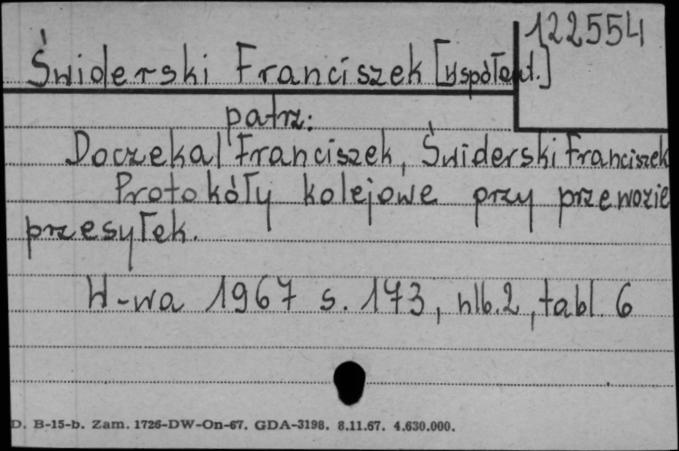 122554
Świderski Franciszek [współaut.]
patrz:
Doczekal Franciszek, Świderski Franciszek
Protokóły kolejowe przy przewozie
przesyłek.
W-wa 1967 s. 173, nlb. 2, tabl. 6
D. B-15-b. Zam. 1726-DW-On-67. GDA-3198. 8.11.67. 4.630.000.